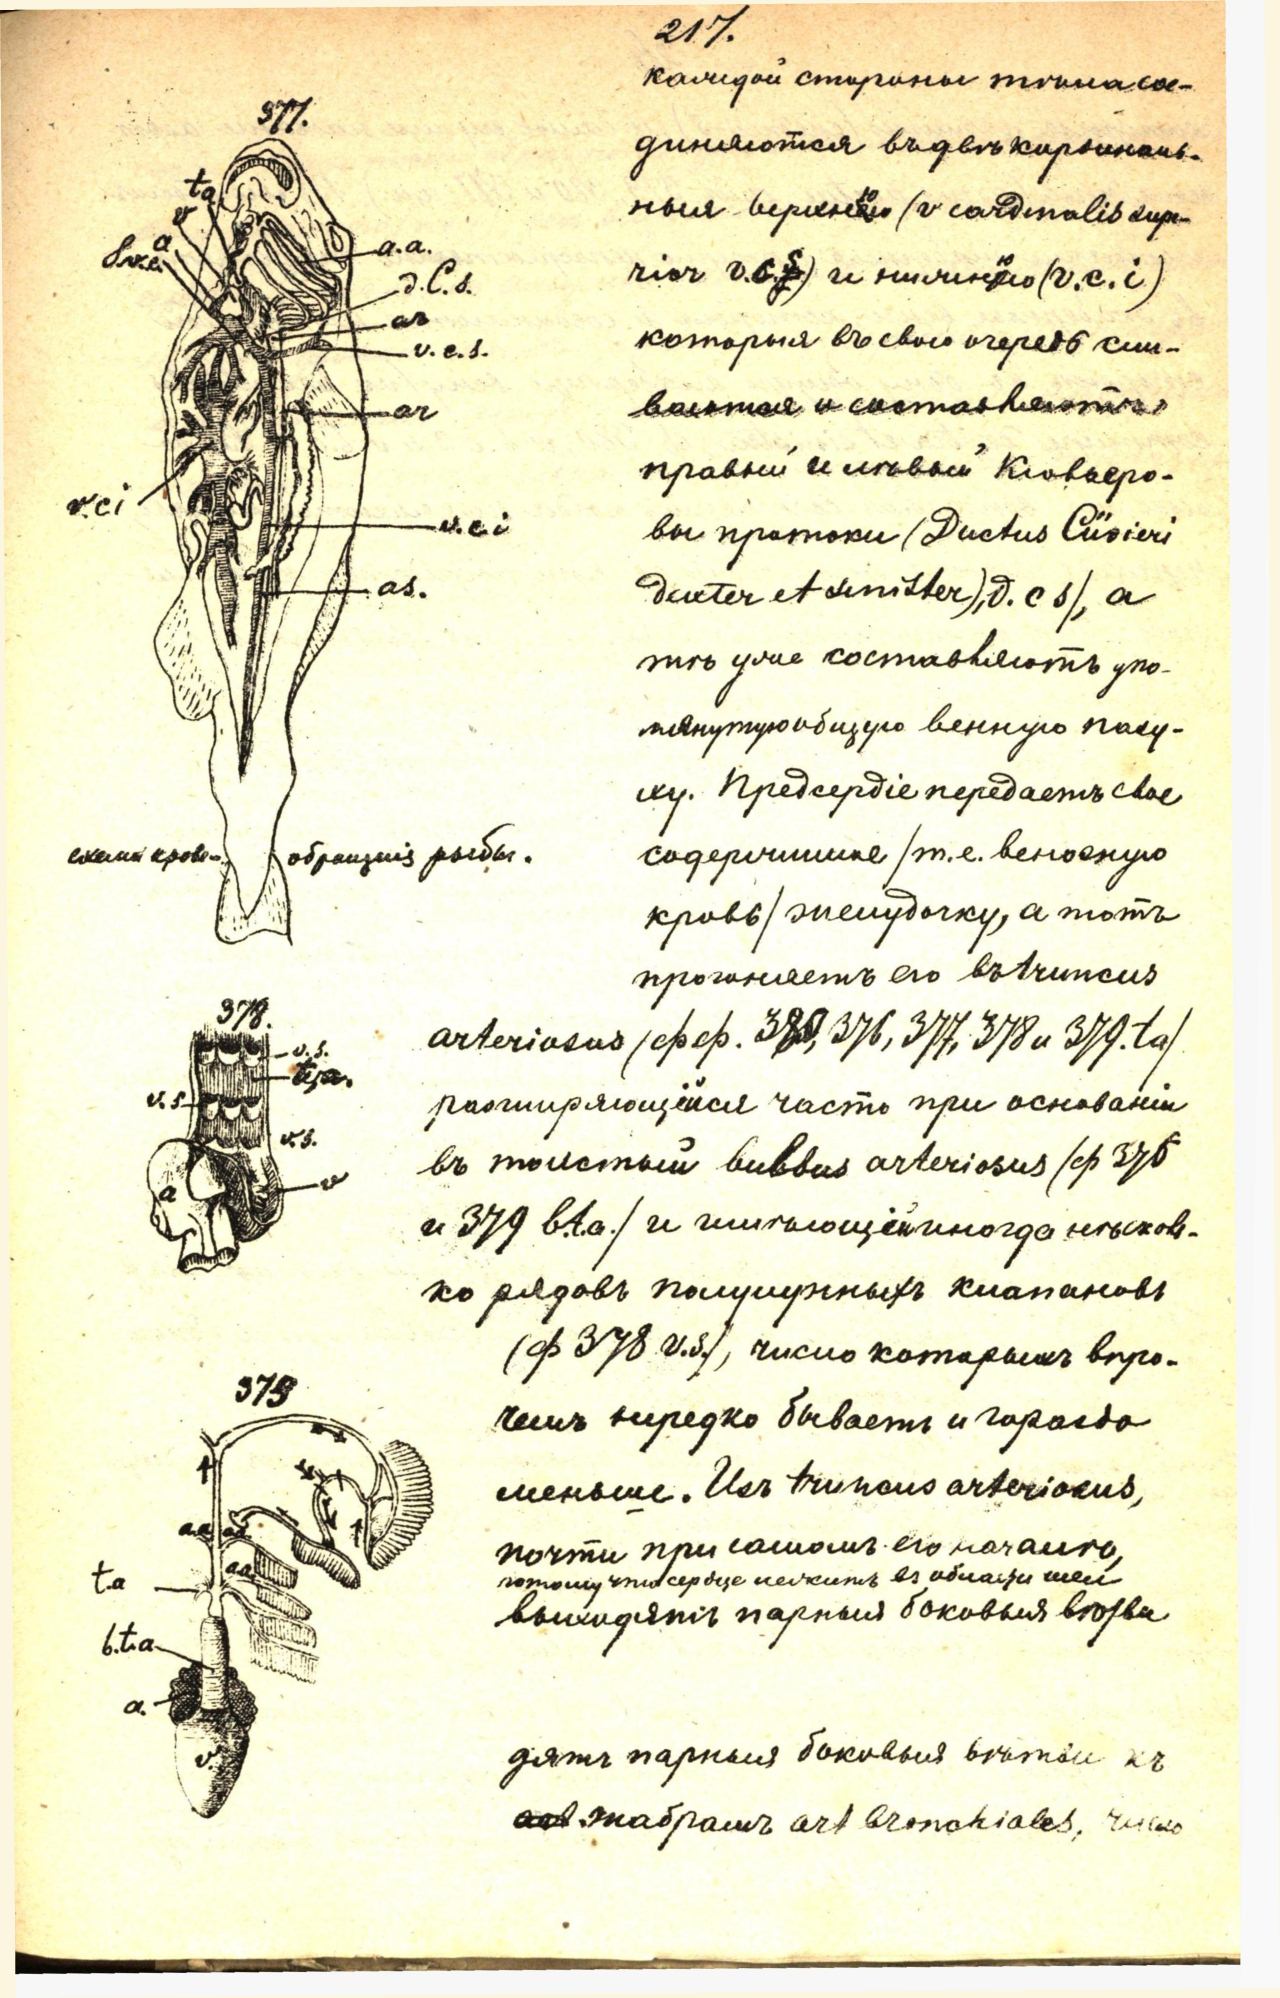 217.
каждой стороны тѣла сое-
диняются въ двѣ кардиналь-
ныя верхнюю (v cardinalis supe-
rior v.c.s) и нижнюю (v.c.i)
которыя въ свою очередь сли-
ваются и составляютъ
правый и лѣвый Кювьеро-
вы протоки (Ductus Cüvieri
dexter et sinister), d. c s/, а
тѣ уже составляютъ упо-
мянутую общую венную пазу-
ху. Предсердіе передаетъ свое
содержимое /т.е. венозную
кровь/ желудочку, а тотъ
прогоняетъ его въ truncus
arteriosus (фф. 380, 376, 377, 378 и 379. ta/
расширяющійся часто при основаніи
въ толстый bulbus arteriosus (ф 376
и 379 b.t.a./ и имѣющій иногда нѣсколь-
ко рядовъ полулунныхъ клапановъ
(ф 378 v.s.), число которыхъ впро-
чемъ нередко бываетъ и гораздо
меньше. Изъ truncus arteriosus,
почти при самомъ его началѣ,
потому что сердце лежитъ въ области шеи
выходятъ парныя боковыя вѣтви
дятъ парныя боковыя вѣтви къ
жабрамъ art bronchiales, число
377.
ta
v
a
S.v.c.
a.a.
d.C.s.
ar
v.c.s.
ar
v.ci
v.c.i
as.
схема крово-
обращенія рыбы.
378.
v.s.
t.a.
v.s
v.s.
a
v
379
a.a
a.a
a.a
t.a
b.t.a
a.
v.